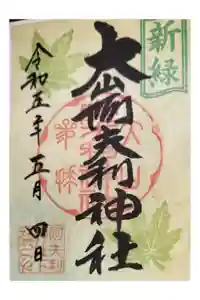 新緑
大山阿夫利神社
令和五年五月四日
阿夫利